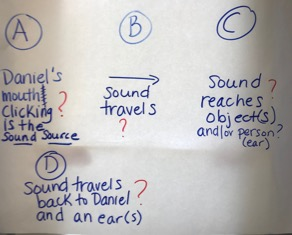 A
Daniel's
mouth
Clicking ?
Is the
Sound Source
B
Sound
travels
?
C
Sound ?
reaches
object(s)
and/or person?
(ear)
D
Sound travels
back to Daniel ?
and an ear(s)